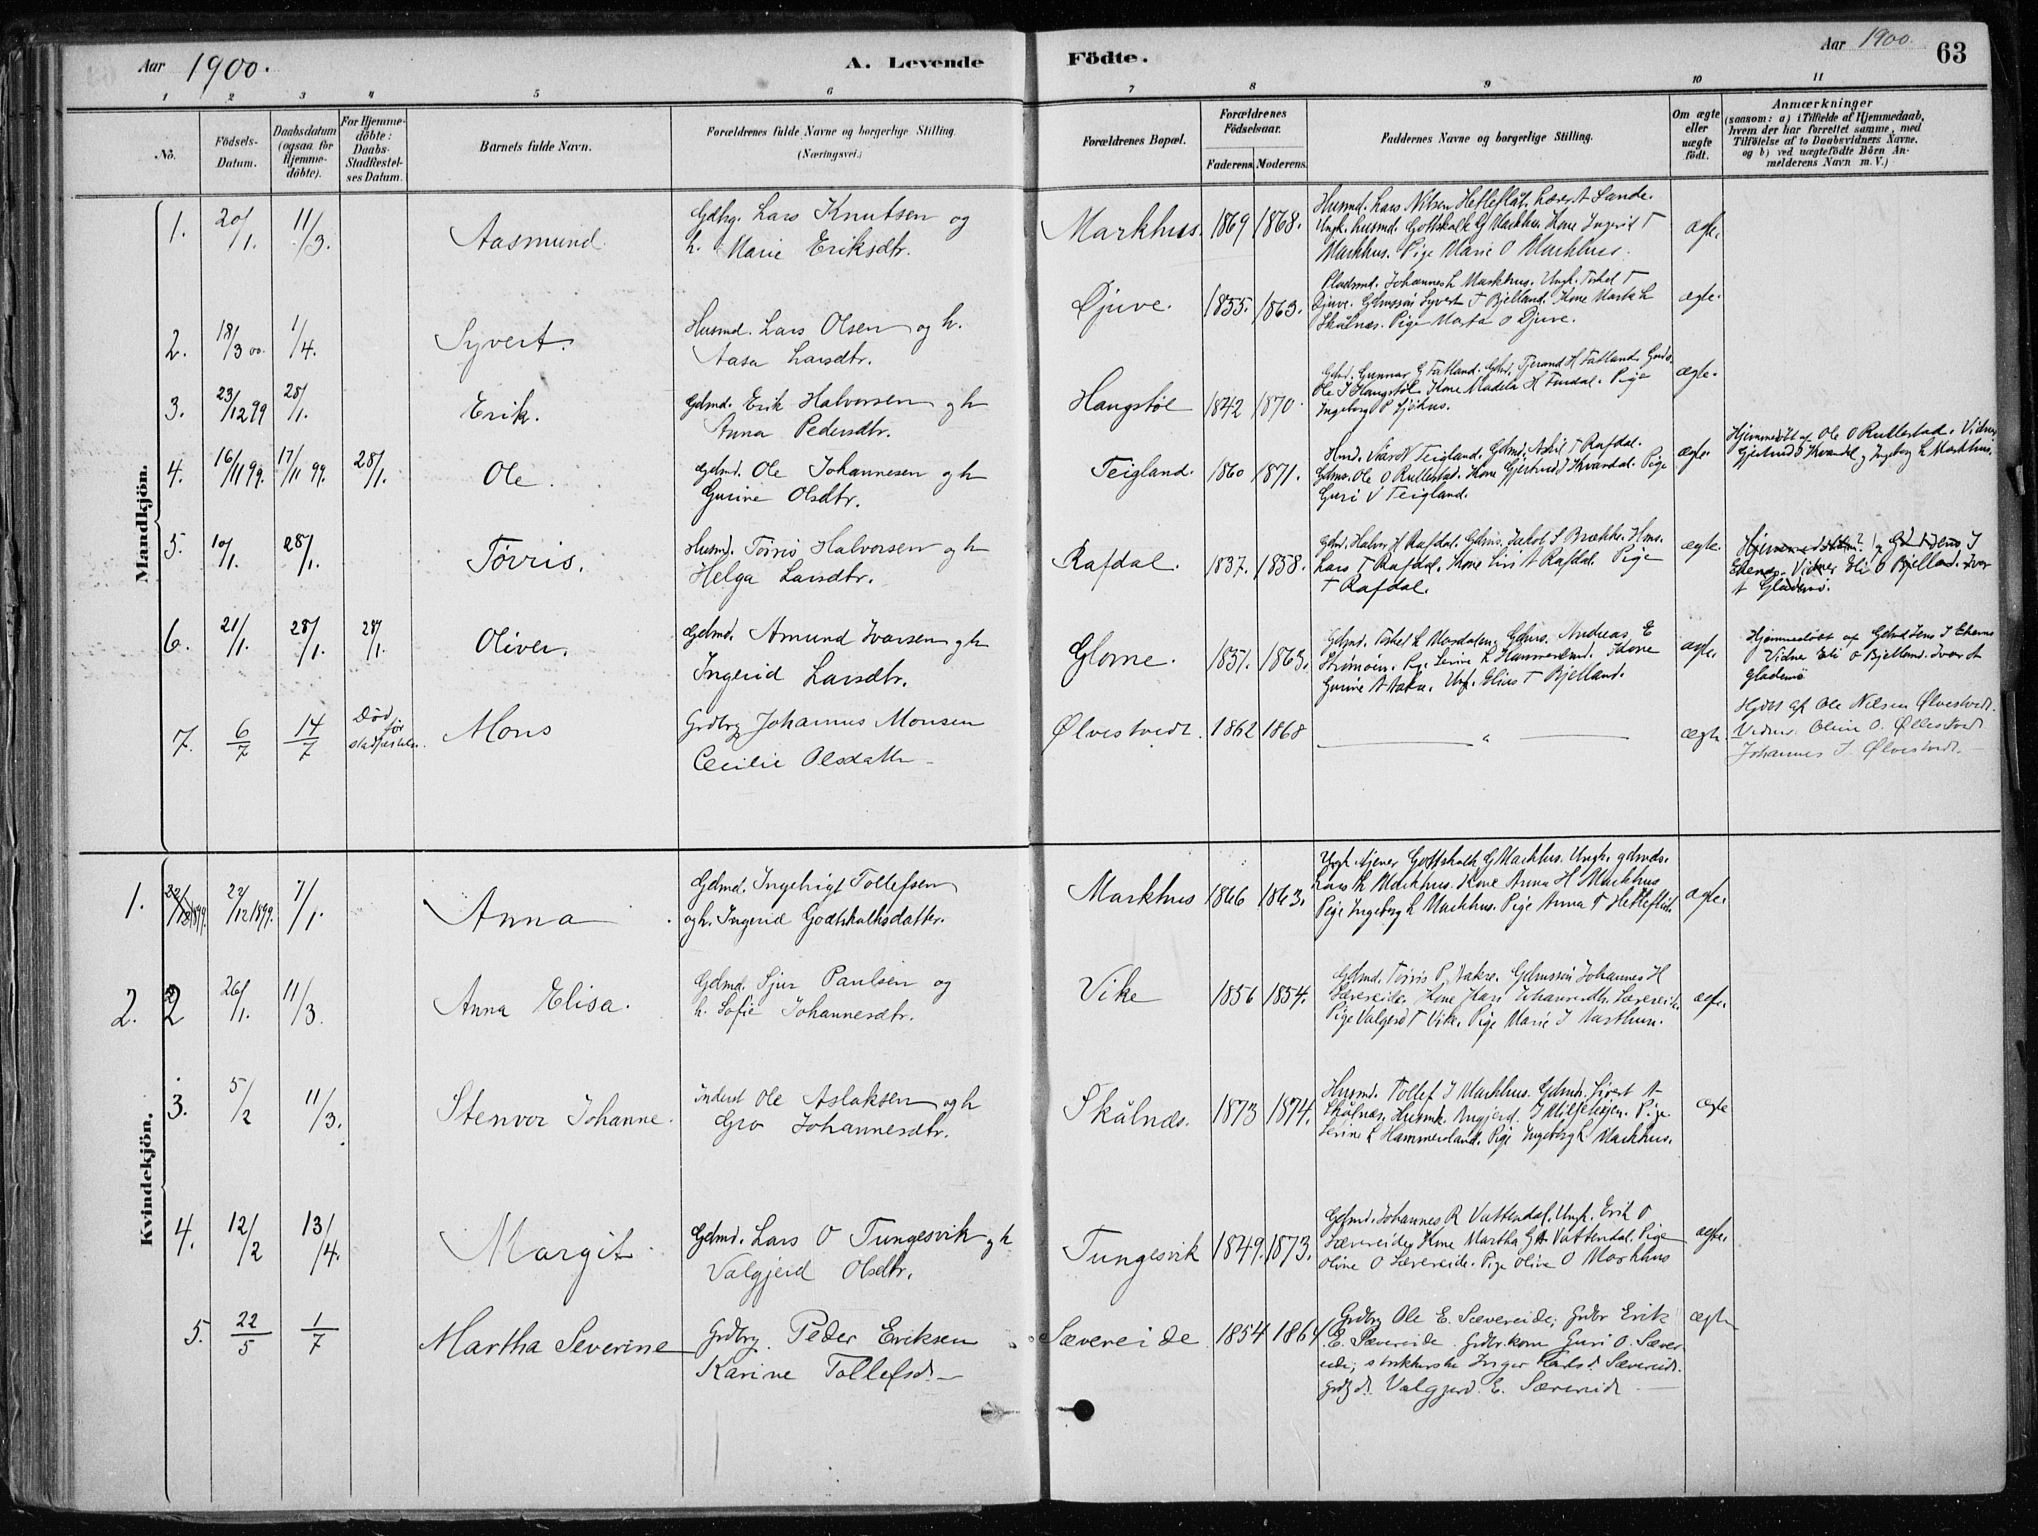 Aar 1900. A. Levende Födte. Aar 1900. 63
1 2 3 4 5 6 7 8 9 10 11
No.
Födsels-
Datum.
Daabsdatum
(ogsaa for
Hjemme-
döbte).
For Hjemme-
döbte:
Daabs-
Stadfæstel-
ses Datum.
Barnets fulde Navn.
Forældrenes fulde Navne og borgerlige Stilling.
(Næringsvei.)
Forældrenes Bopæl.
Forældrenes
Födselsaar.
Faderens. Moderens.
Faddernes Navne og borgerlige Stilling.
Om ægte
eller
uægte
födt.
Anmærkninger
(saasom: a) i Tilfælde af Hjemmedaab,
hvem der har forrettet samme, med
Tilföielse af to Daabsvidners Navne.
og b) ved uægtefödte Börn An-
melderens Navn m. V.)
Mandkjön.
1. 20/1. 11/3. Aasmund.
Gdbg. Lars Knutsen og
h. Marie Eriksdtr.
Markhus. 1869 1868.
Husmd. Lars Nilsen Hetleflåt. Lærer A Sande.
Ungk. husmd. Gottskalk G Markhus. Kone Ingerid T
Markhus. Pige Marie O Markhus.
ægte.
2. 18/3 00. 1/4. Syvert.
Husmd. Lars Olsen og h.
Aasa Larsdtr.
Djuve. 1855. 1863.
Pladsmd. Johannes L Markhus. Ungk. Torkel T
Djuve. Gdmssøn Syvert T Bjelland. Kone Marta L
Skålnæs. Pige Marta O Djuve.
ægte.
3. 23/12 99 28/1. Erik.
Gdmd. Erik Halvorsen og h
Anna Pedersdtr.
Haugstøl 1842 1870.
Gdmd. Gunnar G Fatland. Gdmd. Tjerand H Fatland. Gmds.
Ole I Haugstøl. Kone Madela H Fludal. Pige
Ingeborg P
ægte.
4. 16/11 99. 17/11 99. 28/1. Ole.
Gdmd. Ole Johannesen og h
Gurine Olsdtr.
Teigland. 1860 1871.
Teigland. Gdmd. Askil T Rafdal.
Gdms. Ole O Rullestad. Kone Gjertrud J Kvandal. Pige
Guri V Teigland.
ægte.
Hjemmedøbt af Ole O Rullestad. Vidner
Gjertrud J Kvandal og Ingeborg L Markhus.
5. 10/1. 28/1. Tørris.
Husmd. Tørris Halvorsen og h
Helga Larsdtr.
Rafdal. 1837. 1858.
Gdmd. Halvor H Rafdal. Gdms. Jakob S Brekke. Hms.
Lars T Rafdal. Kone Siri A Rafdal. Pige
T Rafdal.
ægte.
Jens I
Ekenes. Vidner Eli O Bjelland. Ivar
A Glademo.
6. 21/1. 28/1. 28/1. Oliver.
Gdmd. Amund Ivarsen og h
Ingerid Larsdtr.
Glome. 1851. 1863.
Gdmd. Torkel L Mosdalen. Gdms. Andreas E
Pg. Serine L Hammersland. Kone
Gurine A Aakre. Ungk. Elias T Bjelland.
ægte.
Hjemmedøbt af Gdmd Jens I Ekenes
Vidner Eli O Bjelland. Ivar A
Glademo
7. 6/7 14/7 Død
før
stadfæstelsen. Mons
Grdbrg Johannes Monsen
Cecilie Olsdatter
Ølvestvedt. 1862 1868 — " —
ægte.
Hjdøbt af Ole Nilsen Ølvestvedt.
Vidner. Oline O. Ølvestvedt
Johannes J. Ølvestvedt.
Kvindekjön.
1. 22/12 1899. 22/12 1899. 7/1. Anna
Gdmd. Ingebrigt Tollefsen
og h. Ingerid Godtskalksdatter.
Markhus 1866 1863.
Ungk. tjener Gottskalk G Markhus. Ungk. gdmds.
Lars L Markhus. Kone Anna H I Markhus
Pige Ingeborg L Markhus. Pige Anna T Hetleflåt.
ægte.
2. 2 26/1. 11/3. Anna Elisa.
Gdmd. Sjur Paulsen og
h. Sofie Johannesdtr.
Vike 1856 1854.
Gdmd. Tørris P Aakre. Gdmssøn Johannes H
Sævereide. Kone Kari Johannesdtr. Sævereide.
Pige Valgerd T Vike. Pige Marie J Aarthun.
ægte.
3. 5/2 11/3. Stenvor Johanne.
Inderst Ole Aslaksen og h
Gro Johannesdtr.
Skålnæs. 1873 1874.
Husmd. Tollef I Markhus. Gdmd. Sjvert A
Skålnæs. Husmk. Angjerd I Miljeteigen. Pige
Serine L Hammersland. Pige Ingeborg L Markhus.
ægte
4. 12/2 13/4. Margit
Gdmd. Lars O Tungesvik og h
Valgjerd Olsdtr.
Tungesvik 1849. 1873.
Gdmd. Johannes R Vattendal. Ungk. Erik O
Sævereide. Kone Martha G A Vattendal. Pige
Oline O Sævereide. Pige Oline O Markhus
ægte.
5. 22/5 1/7 Martha Severine
Grdbrg. Peder Eriksen
Karine Tollefsdr.
Sævereide 1854 1864
Grdbrg Ole E. Sævereide; Grdbr Erik
E. Sævereide. Grdbr.kone Guri O. Sæver-
eide; Inger Karls d. Sævereide.
Grdbg d. Valgjerd E. Sævereide
ægte